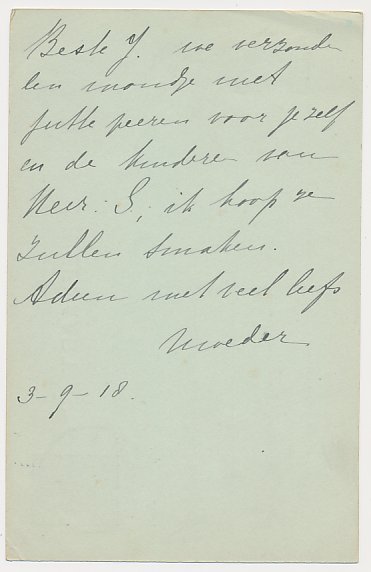 Beste J. we verzonden
een mandje met
jutte peeren voor jezelf
en de kinderen van
Mevr. S, ik hoop ze
zullen smaken.
Adieu met veel liefs
Moeder
3-9-18.